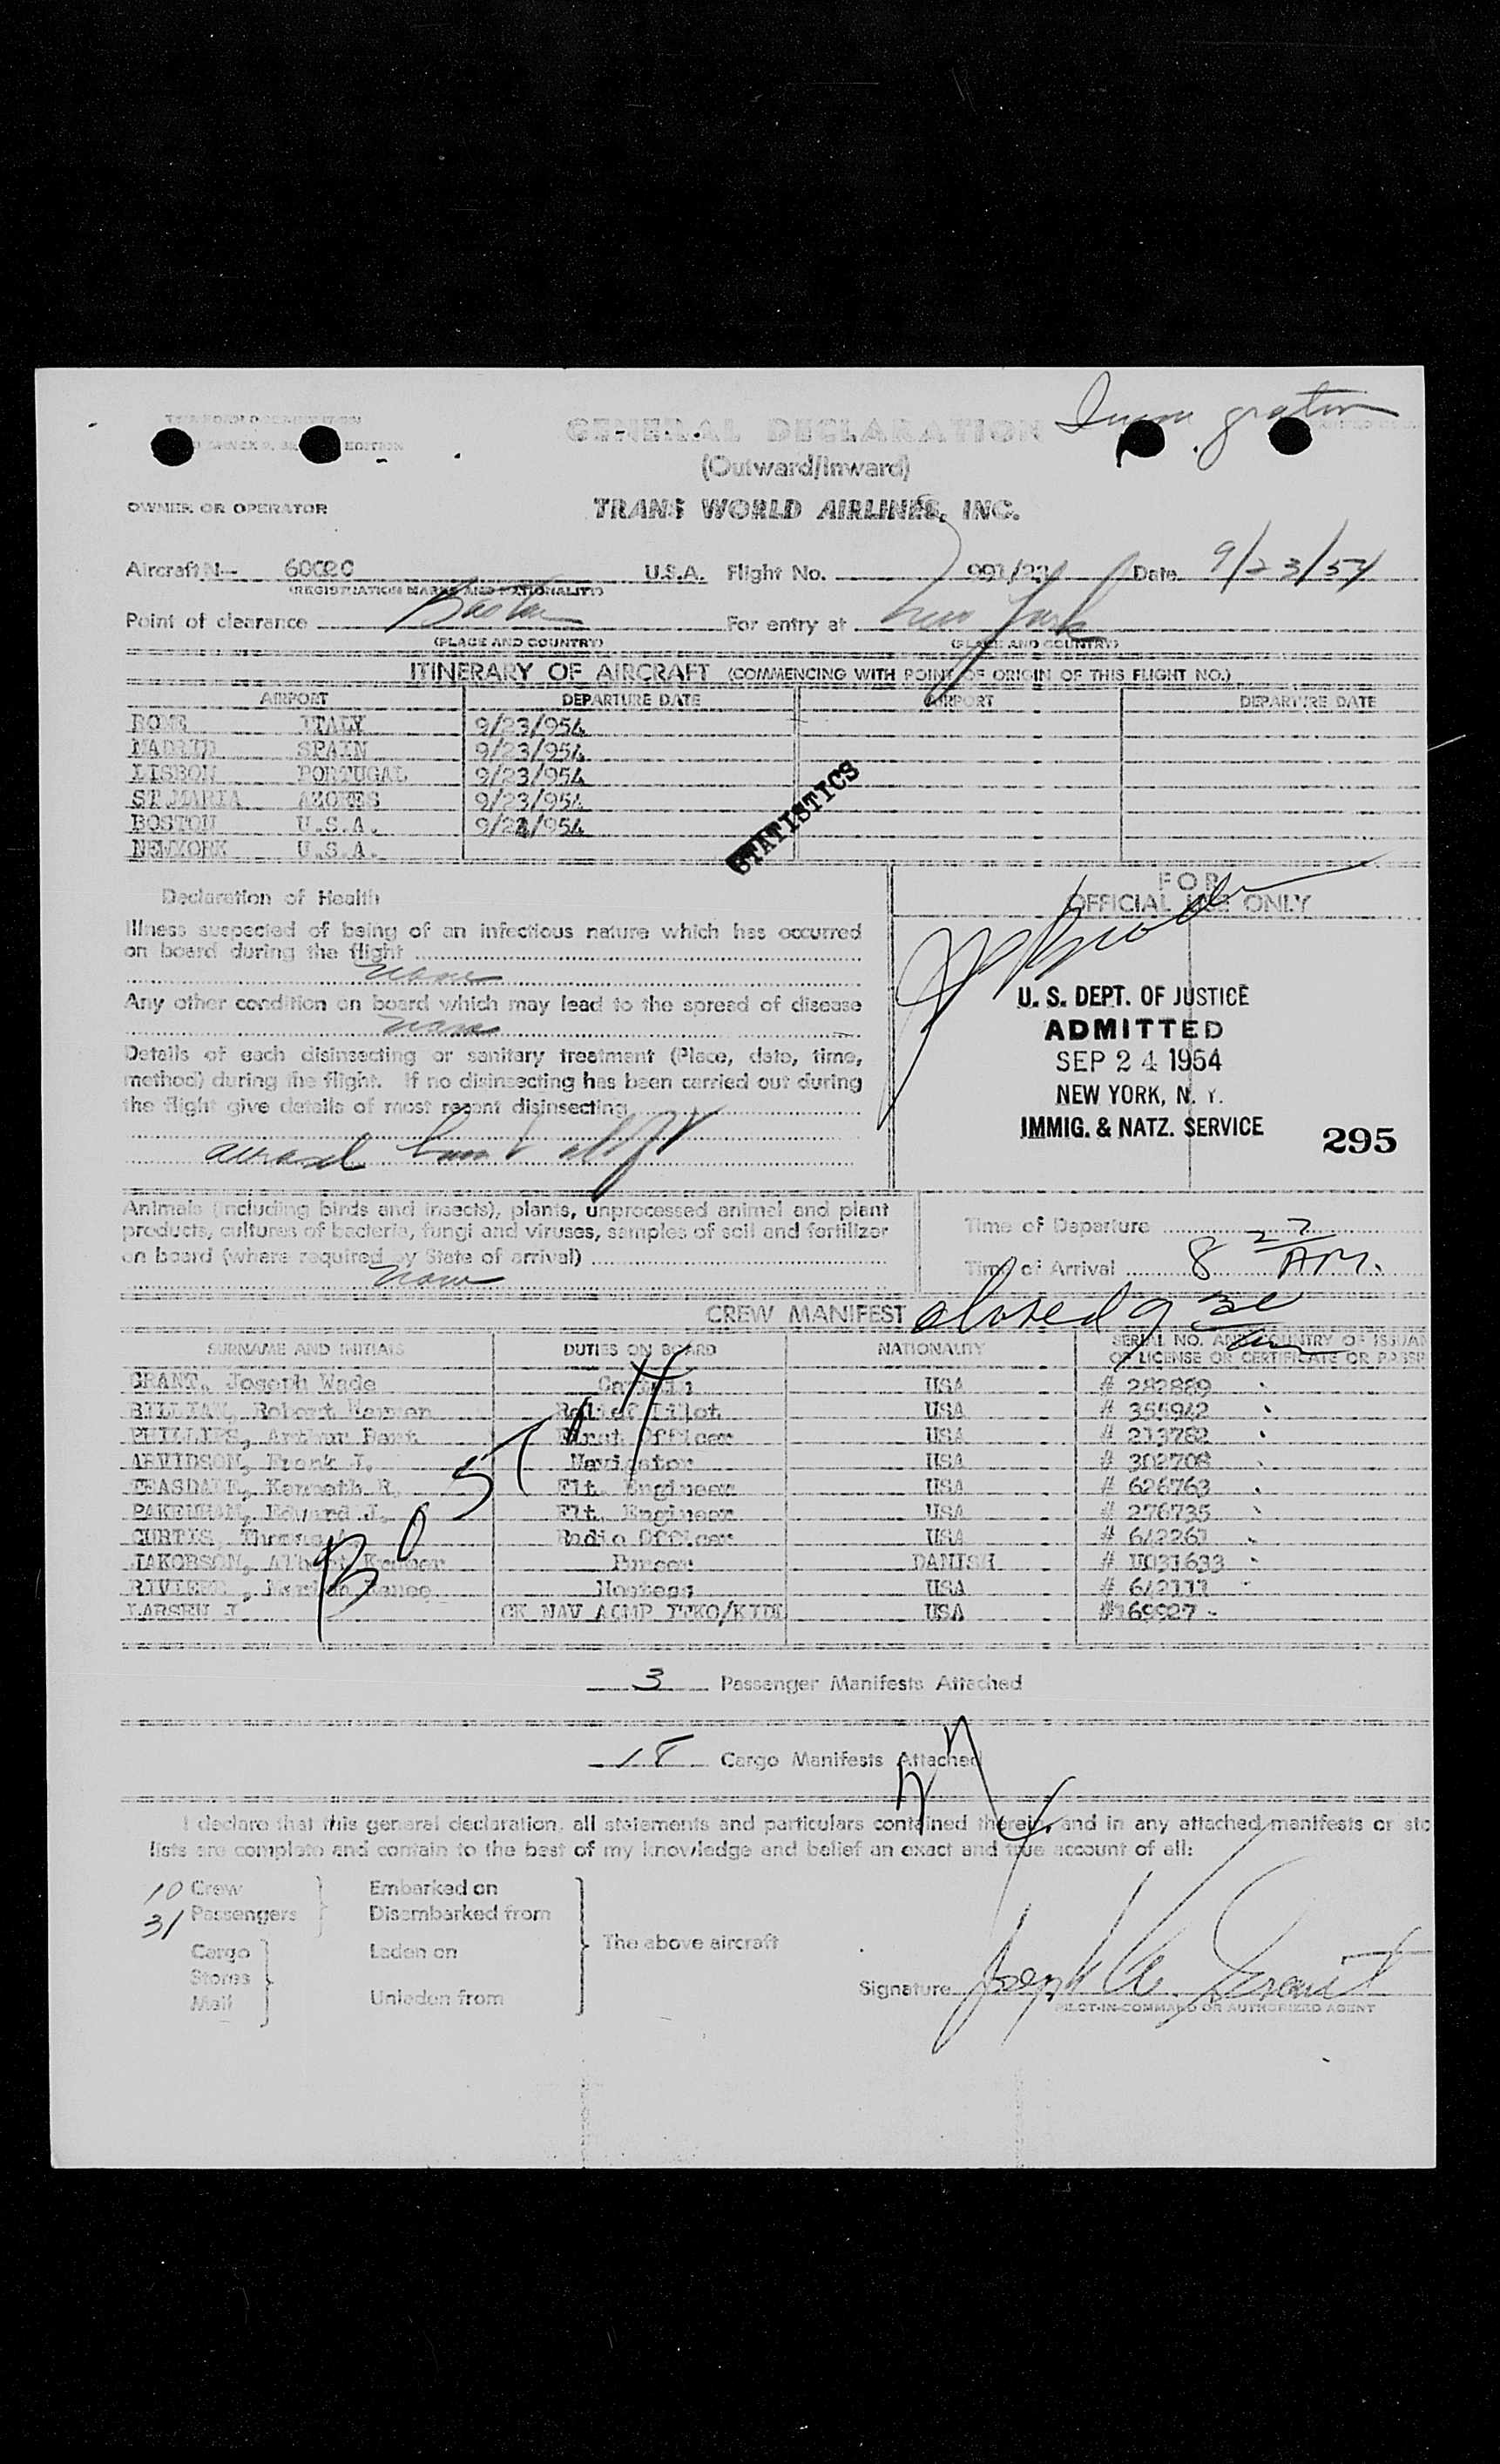 Immigration
GENERAL DECLARATION
(Outward/Inward)
OWNER OR OPERATOR TRANS WORLD AIRLINES, INC.
Aircraft N- U.S.A. Flight No. 991/23 Date 9/23/54
(REGISTRATION MARKS AND NATIONALITY)
Point of clearance Boston For entry at New York
(PLACE AND COUNTRY) (PLACE AND COUNTRY)
ITINERARY OF AIRCRAFT (COMMENCING WITH POINT OF ORIGIN OF THIS FLIGHT NO.)
AIRPORT DEPARTURE DATE AIRPORT DEPARTURE DATE
ROME ITALY 9/23/954
MADRID SPAIN 9/23/954
LISBON PORTUGAL 9/23/954
ST MARIA AZORES 9/23/954
BOSTON U.S.A. 9/24/954
NEWYORK U.S.A.
STATISTICS
Declaration of Health
Illness suspected of being of an infectious nature which has occurred
on board during the flight
none
Any other condition on board which may lead to the spread of disease
none
Details of each disinsecting or sanitary treatment (Place, date, time,
method) during the flight. If no disinsecting has been carried out during
the flight give details of most recent disinsecting
FOR
OFFICIAL USE ONLY
U. S. DEPT. OF JUSTICE
ADMITTED
SEP 24 1954
NEW YORK, N. Y.
IMMIG. & NATZ. SERVICE
295
Animals (including birds and insects), plants, unprocessed animal and plant
products, cultures of bacteria, fungi and viruses, samples of soil and fertilizer
on board (where required by State of arrival)
none
Time of Departure
Time of Arrival 8 27 AM.
CREW MANIFEST closed 9 30
SURNAME AND INITIALS DUTIES ON BOARD NATIONALITY SERIAL NO. AND COUNTRY OF ISSUAN
OF LICENSE OR CERTIFICATE OR PASSP
GRANT, Joseph Wade Captain USA # 282889
Robert Relief Pilot USA # 355942
PHILLIPS, Arthur First Officer USA # 213782
ARVIDSON, Frank J. Navigator USA # 302708
TEASDALE, Kenneth R. Flt. Engineer USA # 626763
PAKENHAM, Edward J. Flt. Engineer USA # 276735
CURTIS, Thomas A. Radio Officer USA # 642261
JAKOBSON, Albert Purser DANISH # U031633
Hostess USA # 642111
LARSEN J CK NAV ACMP USA #169927
BOSTON
3 Passenger Manifests Attached
18 Cargo Manifests Attached
NY
I declare that this general declaration, all statements and particulars contained therein, and in any attached manifests or sto
lists are complete and contain to the best of my knowledge and belief an exact and true account of all:
10 Crew Embarked on
31 Passengers Disembarked from
Cargo Laden on The above aircraft
Stores
Mail Unladen from
Signature Joseph W. Grant
PILOT-IN-COMMAND OR AUTHORIZED AGENT